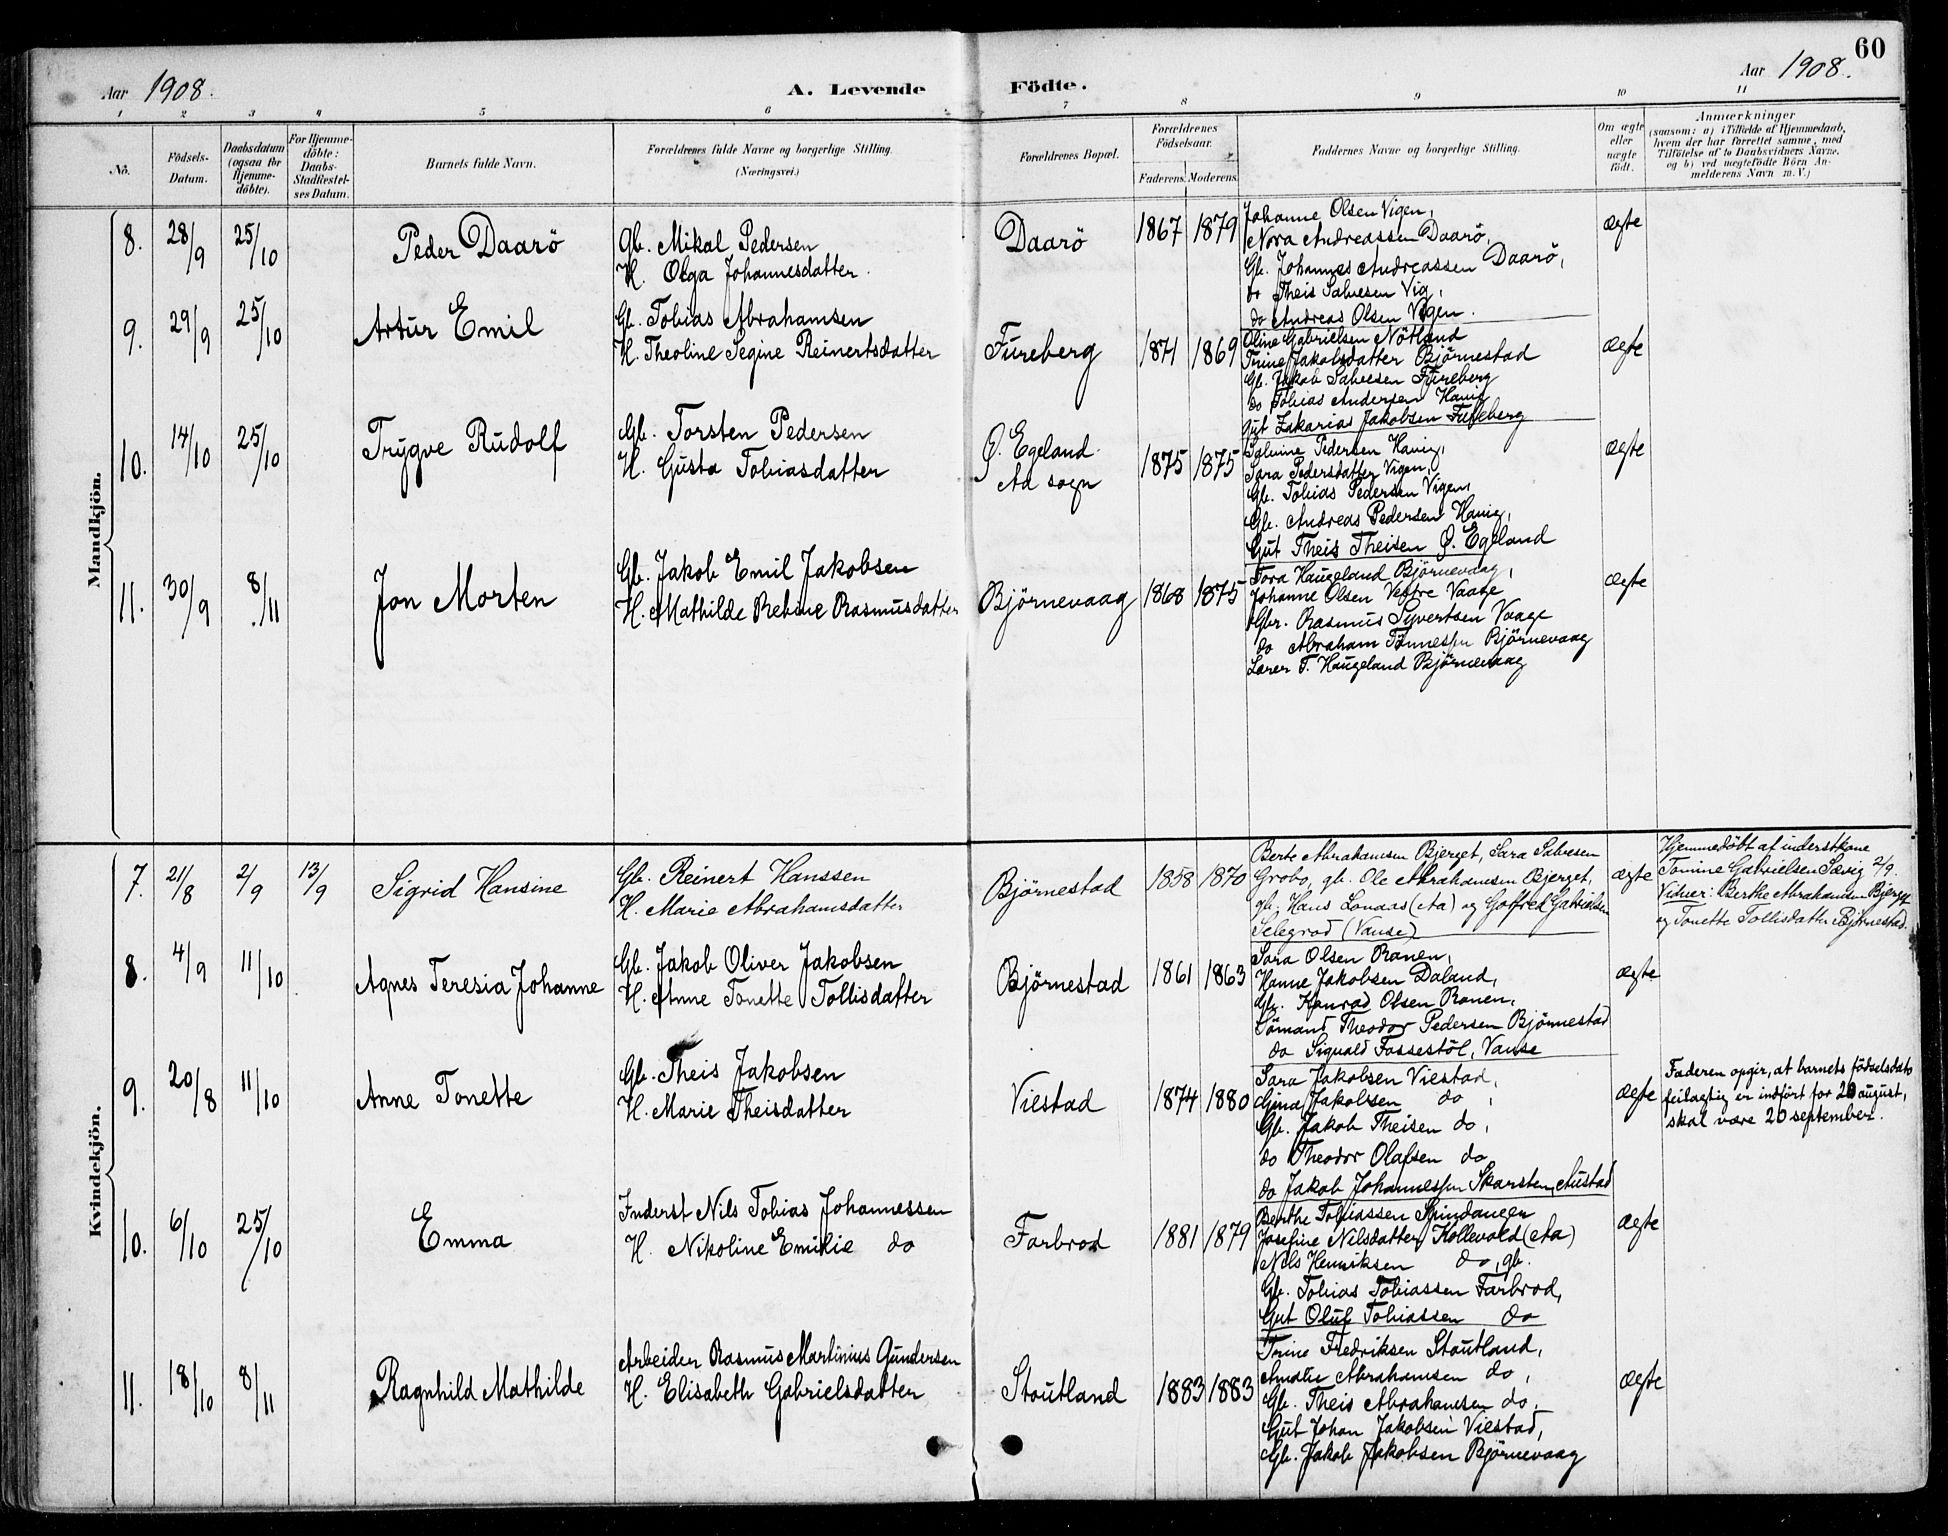 60
Aar 1908.
A. Levende
Födte.
Aar 1908.
1 2 3 4 5 6 7 8 9 10 11
No.
Födsels-
Datum.
Daabsdatum
(ogsaa for
Hjemme-
döbte).
For Hjemme-
döbte:
Daabs-
Stadfæstel-
ses Datum.
Barnets fulde Navn.
Forældrenes fulde Navne og borgerlige Stilling.
(Næringsvei.)
Forældrenes Bopæl.
Forældrenes
Födselsaar.
Faderens. Moderens.
Faddernes Navne og borgerlige Stilling.
Om ægte
eller
uægte
født.
Anmærkninger
(saasom: a) i Tilfælde af Hjemmedaab,
hvem der har forrettet samme, med
Tilföielse af to Daabsvidners Navne,
og b) ved uegtefödte Börn An-
melderens Navn m. V.)
Mandkjön.
8. 28/9 25/10
Peder Daarö
Gb. Mikal Pedersen
H. Olga Johannesdatter.
Daarö
1867 1879
Johanne Olsen Vigen,
Nora Andreassen Daarö,
Gb. Johannes Andreassen Daarö,
do Theis Salvesen Vig,
do Andreas Olsen Vigen.
Ægte
9. 29/9 25/10
Artur Emil
Gb. Tobias Abrahamsen
H. Theoline Segine Reinertsdatter
Fureberg
1871 1869
Oline Gabrielsen Nötland
Trine Jakobsdatter Björnestad
Gb. Jakob Salvesen Fureberg
do Tobias Andersen Havig
Gut Zakarias Jakobsen Fureberg
Ægte
10. 14/10 25/10
Trygve Rudolf
Gb. Torsten Pedersen
H. Gusta Tobiasdatter
Ø. Egeland
Aa sogn
1875 1875
Salvine Pedersen Havig,
Sara Pedersdatter Vigen,
Gb. Tobias Pedersen Vigen,
Gb. Andreas Pedersen Havig,
Gut Theis Theisen Ø. Egeland
Ægte
11. 30/9 8/11
Jon Morten
Gb. Jakob Emil Jakobsen
H. Mathilde Rebine Rasmusdatter
Björnevaag
1868 1875
Tora Haugeland Björnevaag,
Johanne Olsen Vestre Vaage
Gbr. Rasmus Syvertsen Vaage
do Abraham Tönnessen Björnevaag
Lærer T. Haugeland Björnevaag
Ægte
Kvindekjön.
7. 21/8 2/9 13/9
Sigrid Hansine
Gb. Reinert Hanssen
H. Marie Abrahamsdatter
Björnestad
1858 1870
Berte Abrahamsen Bjerget, Sara Salvesen
Grobo, gb. Ole Abrahamsen Bjerget,
gb. Hans Lonaas (Aa) og Gotfred Gabrielsen
Selegrod (Vanse)
ægte
Hjemmedöbt af inderstkone
Tomine Gabrielsen Sævig 2/9.
Vidner: Berthe Abrahamsen Bjerget
og Tonette Tollisdatter Björnestad.
8. 4/9 11/10
Agnes Teresia Johanne
Gb. Jakob Oliver Jakobsen
H. Anne Tonette Tollisdatter
Björnestad
1861 1863
Sara Olsen Ranen,
Hanne Jakobsen Daland,
Gb. Konrad Olsen Ranen,
Sömand Theodor Pedersen Björnestad
do Sigvald Fossestöl, Vanse
Ægte
9. 20/8 11/10
Anne Tonette
Gb. Theis Jakobsen
H. Marie Theisdatter
Viestad
1874 1880
Sara Jakobsen Viestad,
Gina Jakobsen do,
Gb. Jakob Theisen do,
do Theodor Olafsen do
do Jakob Johannessen Skarsten, Austad
Ægte
Faderen opgir, at barnets födselsdato
feilagtig er indfört for 20 august,
skal være 20 september.
10. 6/10 25/10
Emma
Inderst Nils Tobias Johannessen
H. Nikoline Emilie do
Farbrod
1881 1879
Berthe Tobiassen Spindangen
Josefine Nilsdatter Kollevold (Aa)
Nils Henriksen do, gb.
Gb. Tobias Tobiassen Farbrod,
Gut Oluf Tobiassen do
Ægte
11. 18/10 8/11
Ragnhild Mathilde
Arbeider Rasmus Martinius Gundersen
H. Elisabeth Gabrielsdatter
Stoutland
1883 1883
Trine Fredriksen Stoutland,
Amalie Abrahamsen do,
Gb. Theis Abrahamsen do,
Gut Johan Jakobsen Viestad,
Gb. Jakob Jakobsen Björnevaag
Ægte